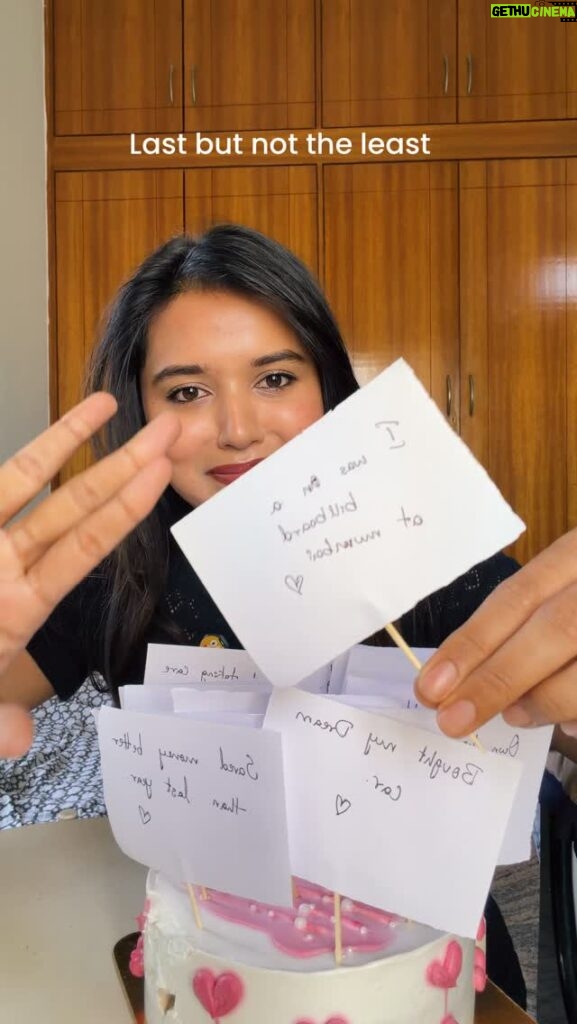 GETHU CINEMA
Last but not the least
I
was on a
billboard
at mumbai
taking care
Saved money better
than last year.
Own
Bought my Dream
Car.